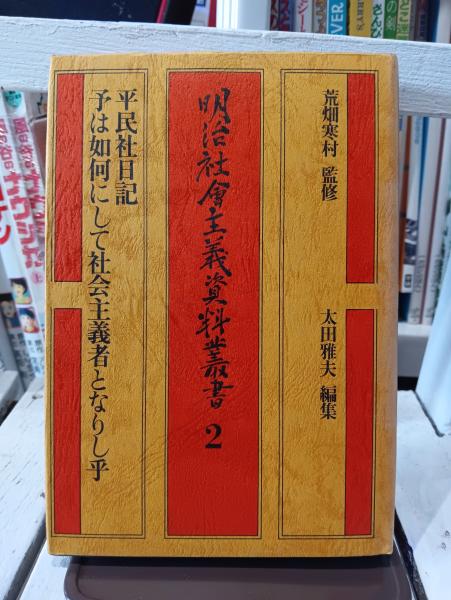 荒畑寒村 監修
太田雅夫 編集
明治社會主義資料叢書 2
平民社日記
予は如何にして社会主義者となりし乎